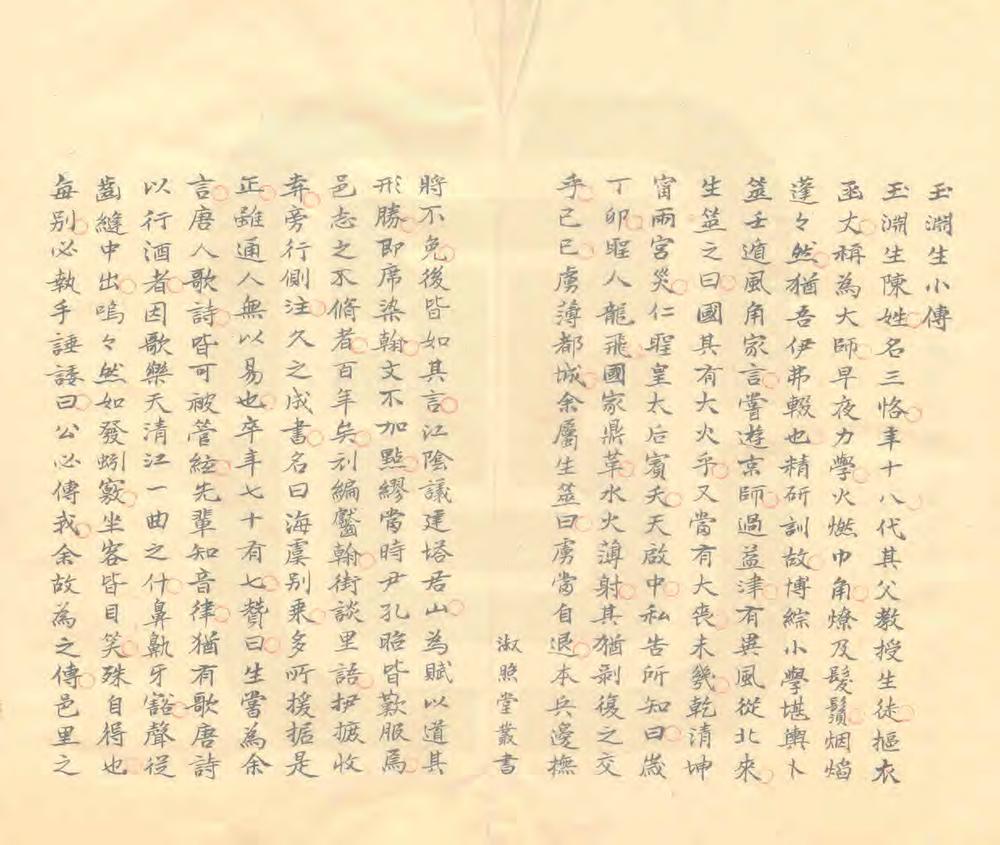 玉淵生小傳
玉淵生陳姓名三恪年十八代其父教授生徒摳衣
函丈稱為大師早夜力學火燃巾角燎及髮鬚烟焰
蓬々然猶吾伊弗輟也精研訓故博綜小學堪輿卜
筮壬遁風角家言嘗遊京師過益津有異風從北來
生筮之曰國其有大火乎又當有大喪未幾乾清坤
甯兩宮災仁聖皇太后賓天天啟中私告所知曰歲
丁卯聖人龍飛國家鼎革水火薄射其猶剝復之交
乎己巳虜薄都城余屬生筮曰虜當自退本兵邊撫
淑照堂叢書
將不免後皆如其言江陰議建塔君山為賦以道其
形勝即席染翰文不加點繆當時尹孔昭皆歎服焉
邑志之不脩者百年矣刋編齾翰街談里語抄摭收
弆旁行側注久之成書名曰海虞别乘多所援据是
正雖通人無以易也卒年七十有七贊曰生嘗為余
言唐人歌詩皆可被管絃先輩知音律猶有歌唐詩
以行酒者因歌樂天清江一曲之什鼻鼽牙豁聲從
齒縫中出嗚々然如發蚓竅坐客皆目笑殊自得也
每别必執手諈諉曰公必傳我余故為之傳邑里之